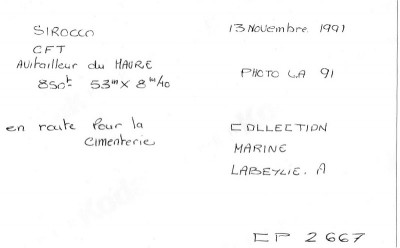 SIROCCO
CFT
Avitailleur du HAVRE
850t 53m x 8m40
en route Pour la
Cimenterie
13 Novembre 1991
PHOTO L.A 91
COLLECTION
MARINE
LABEYLIE. A
CP 2667